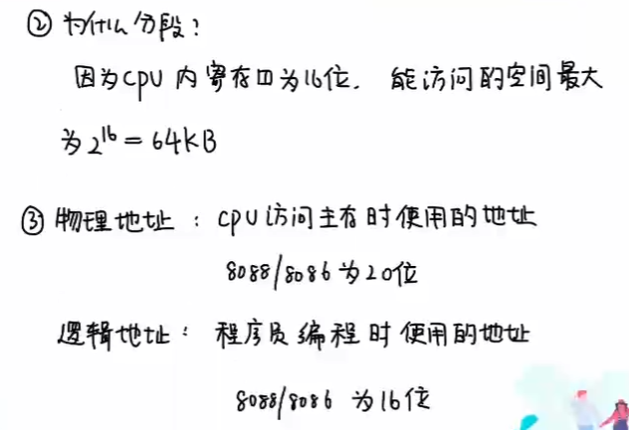 ② 为什么分段：
因为CPU内寄存口为16位. 能访问的空间最大
为2¹⁶=64KB
③ 物理地址：CPU访问主存时使用的地址
8088/8086为20位
逻辑地址：程序员编程时使用的地址
8088/8086 为16位